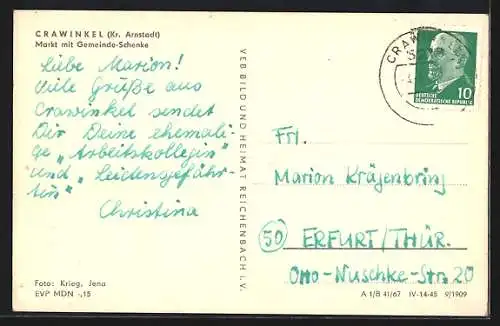 CRAWINKEL (Kr. Arnstadt)
Markt mit Gemeinde-Schenke
Liebe Marion!
Viele Grüße aus
Crawinkel sendet
Dir Deine ehemali-
ge „Arbeitskollegin"
und „Leidensgefähr-
tin"
Christina
Foto: Krieg, Jena
EVP MDN -,15
VEB BILD UND HEIMAT REICHENBACH I. V.
10
DEUTSCHE
DEMOKRATISCHE REPUBLIK
Frl.
Marion Kräjenbring
50 ERFURT/THÜR.
Otto-Nuschke-Str. 20
A 1/B 41/67 IV-14-45 9/1909